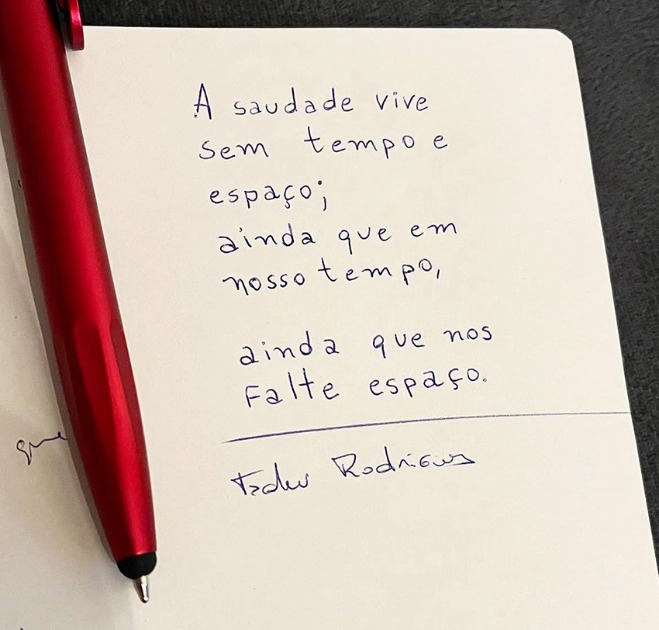 A saudade vive
sem tempo e
espaço;
ainda que em
nosso tempo,
ainda que nos
Falte espaço.
Rodrigues
que